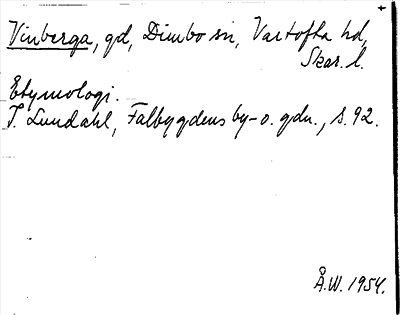 Vinberga, gd, Dimbo sn, Vartofta hd,
Skar. l.
Etymologi.
I. Lundahl, Falbygdens by- o. gdn., s. 92.
Å.W. 1954.